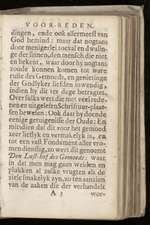 VOOR-REDEN.
dingen, ende ook allermeest van
God bemind: maar dat nogtans
door menigerlei toeval en dwalin-
ge der sinnen, den mensch die niet
en bekent, waar door hy nogtans
zoude konnen komen tot ware
ruste des Gemoeds, en gerieinge
der Godlyker liefden inwendig,
indien hy dit ter dege betragtes,
Over sulks wert die met veel rede-
nen en uitgelesen Schriftuur-plaat-
sen bewesen: Ook daar by doende
eenige getuigenisse der Oude: En
mindien dat dit voor het gemoed
zeer lieflyk en vermakelyk is, en
tot een vast Fondament aller vro-
men dienende, so wert dit genoemt
Den Lust-hof des Gemoeds: want
in dit men mag gaan weiden en
plukken al zulke vrugten als de
ziele smakelyk zyn, zo ten aansien
van de zaken die der verhandelt
A 3 wor-